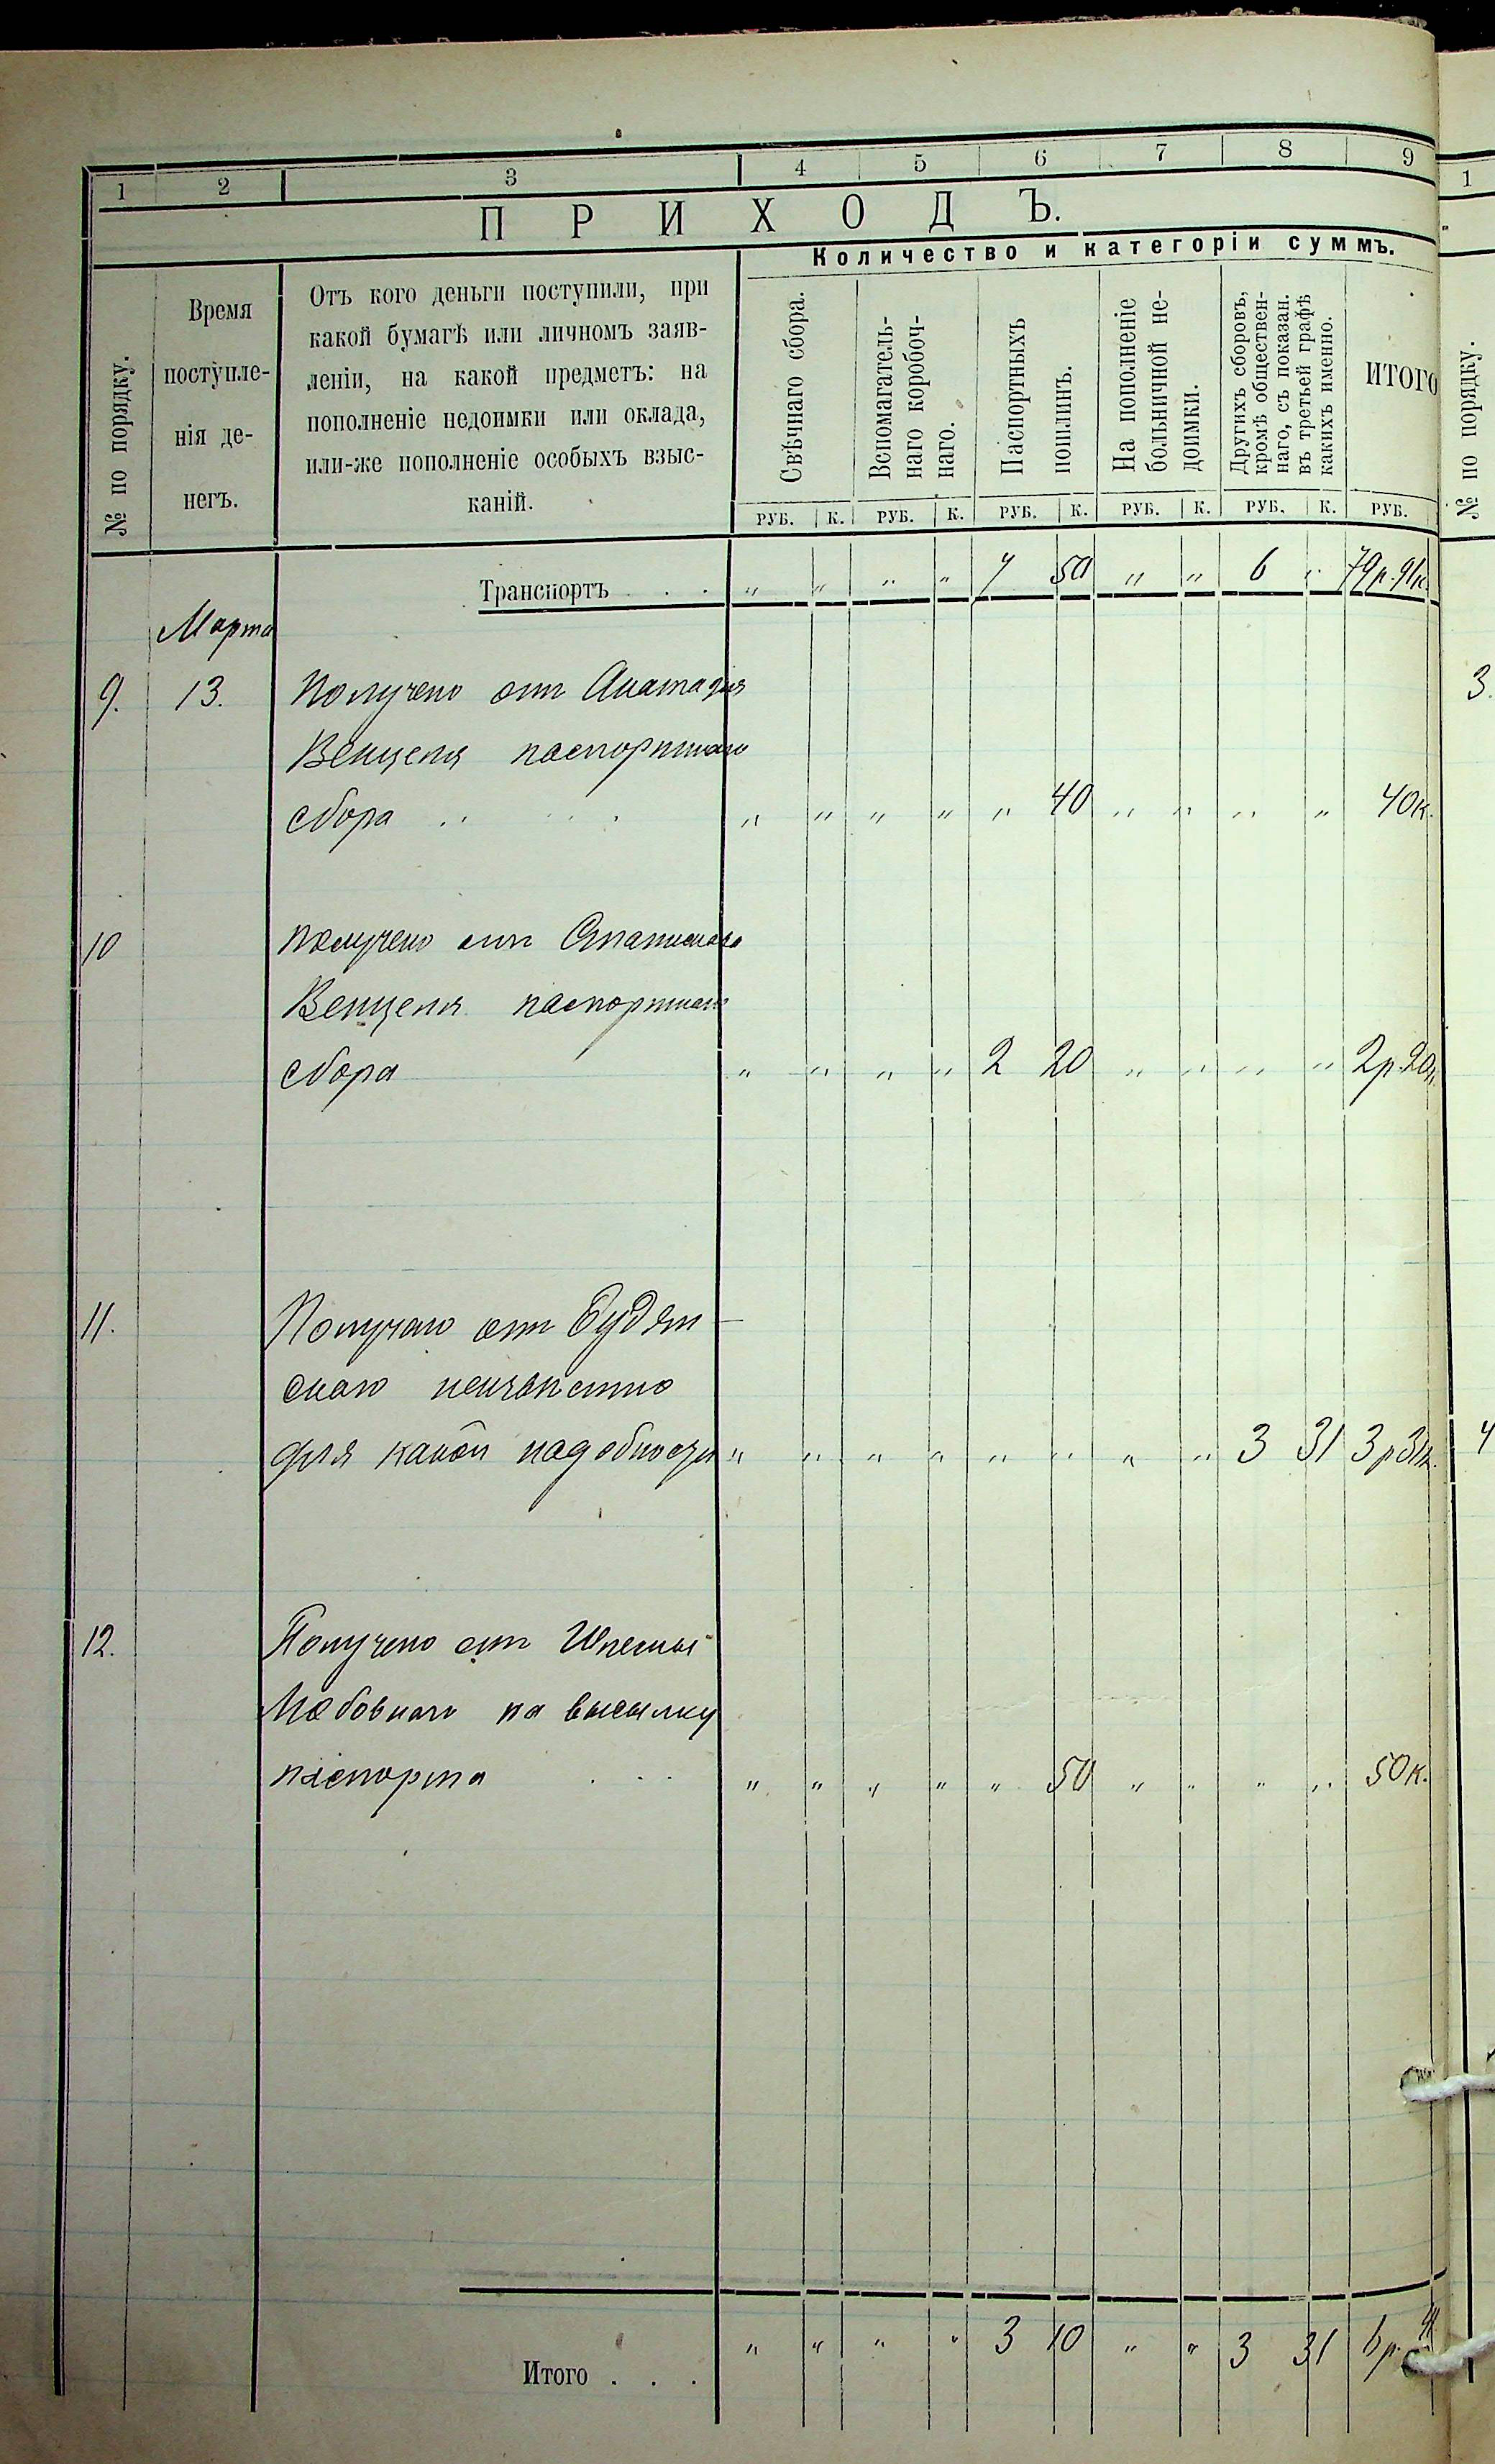 1 2 3 4 5 6 7 8 9
1
ПРИХОДЪ.
Количество и категоріи суммъ.
№ по порядку.
Время
поступле-
нія де-
негъ.
Отъ кого деньги поступили, при
какой бумагѣ или личномъ заяв-
леніи, на какой предметъ: на
пополненіе недоимки или оклада,
или-же пополненіе особыхъ взыс-
каній.
Свѣчнаго сбора.
Вспомагатель-
наго коробоч-
наго.
Паспортныхъ
поплинъ.
На пополненіе
больничной не-
доимки.
Другихъ сборовъ,
кромѣ обществен-
наго, съ показан.
въ третьей графѣ
какихъ именно.
ИТОГО
№ по порядку.
РУБ. К. РУБ. К. РУБ. К. РУБ. К. РУБ. К. РУБ.
Транспортъ . . . „ „ „ „ 7 50 „ „ 6 „ 79р.91к.
Марта
9. 13. Получено отъ
Венцеля паспортнаго
сбора „ „ „ „ „ 40 „ „ „ „ 40к.
3.
10 Получено отъ
Венцеля паспортнаго
сбора „ „ „ „ 2 20 „ „ „ „ 2р.20к.
11. Получено отъ Будян-
скаго неизвѣстно
для какой надобности „ „ „ „ „ „ „ „ 3 31 3р31к.
4
12. Получено отъ
на высылку
паспорта . . . „ „ „ „ „ 50 „ „ „ „ 50к.
Итого . . . „ „ „ „ 3 10 „ „ 3 31 6р.